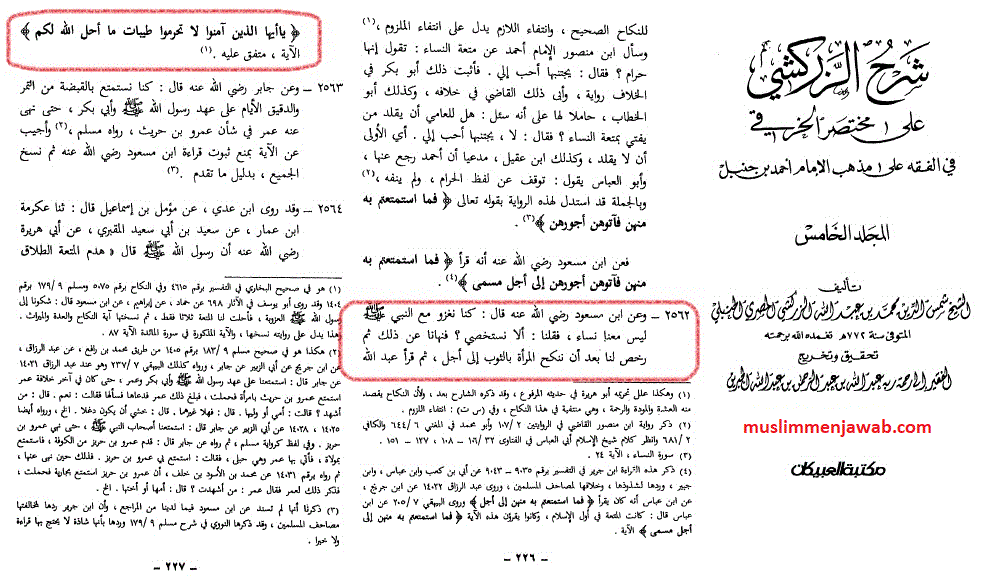 شرح الزركشي
على مختصر الخرقي
في الفقه على مذهب الإمام أحمد بن حنبل
المجلد الخامس
تأليف
الشيخ شمس الدين محمد بن عبد الله الزركشي المصري الحنبلي
المتوفى سنة ٧٧٢هـ تغمده الله برحمته
تحقيق وتخريج
الفقير إلى رحمة ربه عبد الله بن عبد الرحمن بن عبد الله الجبرين
muslimmenjawab.com
مكتبة العبيكان
للنكاح الصحيح ، وانتفاء اللازم يدل على انتفاء الملزوم ،(١)
وسأل ابن منصور الإمام أحمد عن متعة النساء : تقول إنها
حرام ؟ فقال : يجتنبها أحب إلي . فأثبت ذلك أبو بكر في
الخلاف رواية ، وأبى ذلك القاضي في خلافه ، وكذلك أبو
الخطاب ، حاملا لها على أنه سئل : هل للعامي أن يقلد من
يفتي بمتعة النساء ؟ فقال : لا ، يجتنبها أحب إلي . أي الأولى
أن لا يقلد ، وكذلك ابن عقيل ، مدعيا أن أحمد رجع عنها ،
وأبو العباس يقول : توقف عن لفظ الحرام ، ولم ينفه ،(٢)
وبالجملة قد استدل لهذه الرواية بقوله تعالى ﴿ فما استمتعتم به
منهن فآتوهن أجورهن ﴾(٣) .
فعن ابن مسعود رضي الله عنه أنه قرأ ﴿ فما استمتعتم به
منهن فآتوهن أجورهن إلى أجل مسمى ﴾(٤) .
٢٥٦٢ ــ وعن ابن مسعود رضي الله عنه قال : كنا نغزو مع النبي ﷺ
ليس معنا نساء ، فقلنا : ألا نستخصي ؟ فنهانا عن ذلك ثم
رخص لنا بعد أن ننكح المرأة بالثوب إلى أجل ، ثم قرأ عبد الله
(١) وهكذا علل تحريمه أبو هريرة في حديثه المرفوع ، وقد ذكره الشارح بعد ، ولأن النكاح يقصد
منه العشرة والمودة والرحمة ، وهي منتفية في هذا النكاح ، وفي (س ت) : انتفاء اللزوم .
(٢) ذكر رواية ابن منصور القاضي في الروايتين ١٠٧/٢ وأبو محمد في المغني ٦٤٤/٦ والكافي
٦٨١/٢ وانظر كلام شيخ الإسلام أبي العباس في الفتاوى ١٦/٣٢ ، ١٠٨ ، ١٢٧ ، ١٥١ .
(٣) سورة النساء ، الآية ٢٤ .
(٤) ذكر هذه القراءة ابن جرير في التفسير برقم ٩٠٣٥ ــ ٩٠٤٣ عن أبي بن كعب وابن عباس ، وابن
جبير ، وردها لشذوذها ، وخلافها لمصاحف المسلمين ، وروى عبد الرزاق ١٤٠٢٢ عن ابن جريج ،
عن ابن عباس أنه كان يقرأ ﴿ فما استمتعتم به منهن إلى أجل ﴾ وروى البيهقي ٢٠٥/٧ عن ابن
عباس قال : كانت المتعة في أول الإسلام ، وكانوا يقرؤن هذه الآية ﴿ فما استمتعتم به منهن إلى
أجل مسمى ﴾ الآية .
ــ ٢٢٦ ــ
﴿ ياأيها الذين آمنوا لا تحرموا طيبات ما أحل الله لكم ﴾
الآية ، متفق عليه .(١)
٢٥٦٣ ــ وعن جابر رضي الله عنه قال : كنا نستمتع بالقبضة من التمر
والدقيق الأيام على عهد رسول الله ﷺ وأبي بكر ، حتى نهى
عنه عمر في شأن عمرو بن حريث ، رواه مسلم ،(٢) وأجيب
عن الآية بمنع ثبوت قراءة ابن مسعود رضي الله عنه ثم نسخ
الجميع ، بدليل ما تقدم .(٣)
٢٥٦٤ ــ وقد روى ابن عدي ، عن مؤمل بن إسماعيل قال : ثنا عكرمة
ابن عمار ، عن سعيد بن أبي سعيد المقبري ، عن أبي هريرة
رضي الله عنه أن رسول الله ﷺ قال « هدم المتعة الطلاق
(١) هو في صحيح البخاري في التفسير برقم ٤٦١٥ وفي النكاح برقم ٥٠٧٥ ومسلم ١٧٩/٩ برقم
١٤٠٤ وقد روى أبو يوسف في الآثار ٦٩٨ عن حماد ، عن إبراهيم ، عن ابن مسعود قال : شكونا إلى
رسول الله ﷺ العزوبة ، فأحلت لنا المتعة ثلاثا فقط ، ثم نسختها آية النكاح والعدة والميراث .
وهذا يدل على روايته نسخها ، والآية المذكورة في سورة المائدة الآية ٨٧ .
(٢) هكذا هو في صحيح مسلم ١٨٣/٩ برقم ١٤٠٥ من طريق محمد بن رافع ، عن عبد الرزاق ،
عن ابن جريج عن أبي الزبير عن جابر ، ورواه كذلك البيهقي ٢٣٧/٧ وهو عند عبد الرزاق ١٤٠٢١
عن جابر قال : استمتعنا على عهد رسول الله ﷺ وأبي بكر وعمر ، حتى كان في آخر خلافة عمر
استمتع عمرو بن حريث بامرأة فحملت ، فبلغ ذلك عمر فدعاها فسألها فقالت : نعم . قال : من
أشهد ؟ قالت : أمي أو وليها . قال : فهلا غيرهما . قال : خشي أن يكون دغلا . الخ ، ورواه أيضا
١٤٠٢٥ ، ١٤٠٢٨ عن أبي الزبير عن جابر قال : استمتعنا أصحاب النبي ﷺ ، حتى نهى عمرو بن
حريز . وفي لفظ كرواية مسلم ، ثم رواه عن جابر قال : قدم عمرو بن حريز من الكوفة ، فاستمتع
بمولاة ، فأتي بها عمر وهي حبلى ، فقالت : استمتع بي عمرو بن حريز . فذلك حين نهى عنها ،
ثم رواه برقم ١٤٠٣١ عن محمد بن الأسود بن خلف ، أن عمرو بن حريز استمتع بجارية فحملت ،
فذكر ذلك لعمر فقال عمر : من أشهدت ؟ قال : أمها أو أختها . الخ .
(٣) ذكرنا أنها لم تسند عن ابن مسعود فيما لدينا من المراجع ، وأن ابن جرير ردها لمخالفتها
مصاحف المسلمين ، وقد ذكرها النووي في شرح مسلم ١٧٩/٩ وردها بأنها شاذة لا يحتج بها قراءة
ولا خبرا .
ــ ٢٢٧ ــ